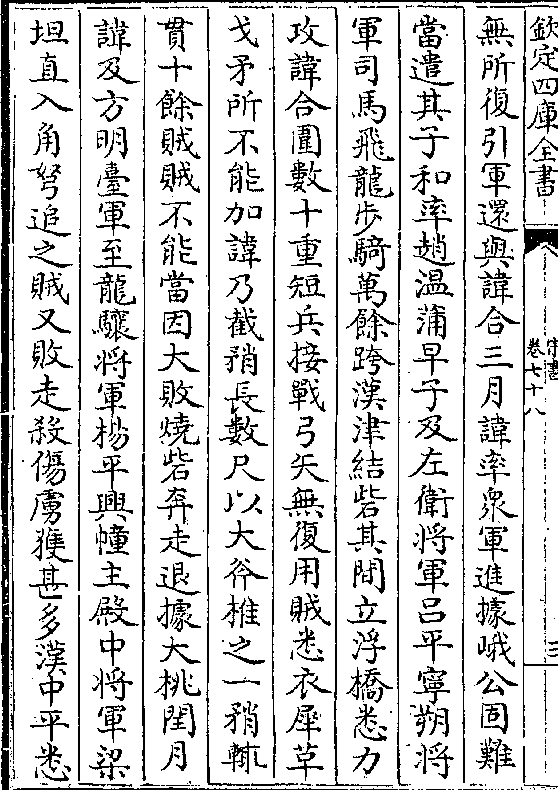 欽定四庫全書
宋書
卷七十八
三
無所復引軍還與諱合三月諱率衆軍進據峨公固難
當遣其子和率趙溫蒲早子及左衛將軍吕平寧朔將
軍司馬飛龍步騎萬餘跨漢津結砦其間立浮橋悉力
攻諱合圍數十重短兵接戰弓矢無復用賊悉衣犀革
戈矛所不能加諱乃截矟長數尺以大斧椎之一矟輒
貫十餘賊賊不能當因大敗燒砦奔走退據大桃閏月
諱及方明臺軍至龍驤將軍楊平興幢主殿中將軍梁
坦直入角弩追之賊又敗走殺傷虜獲甚多漢中平悉